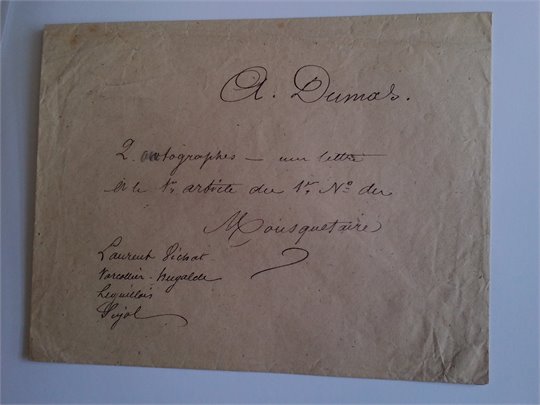 A. Dumas.
2. autographes — une lettre
et le 1er article du 1er No du
Mousquetaire
Laurent Pichat
Varcollier - Hugalde
Lequillois
Pujol